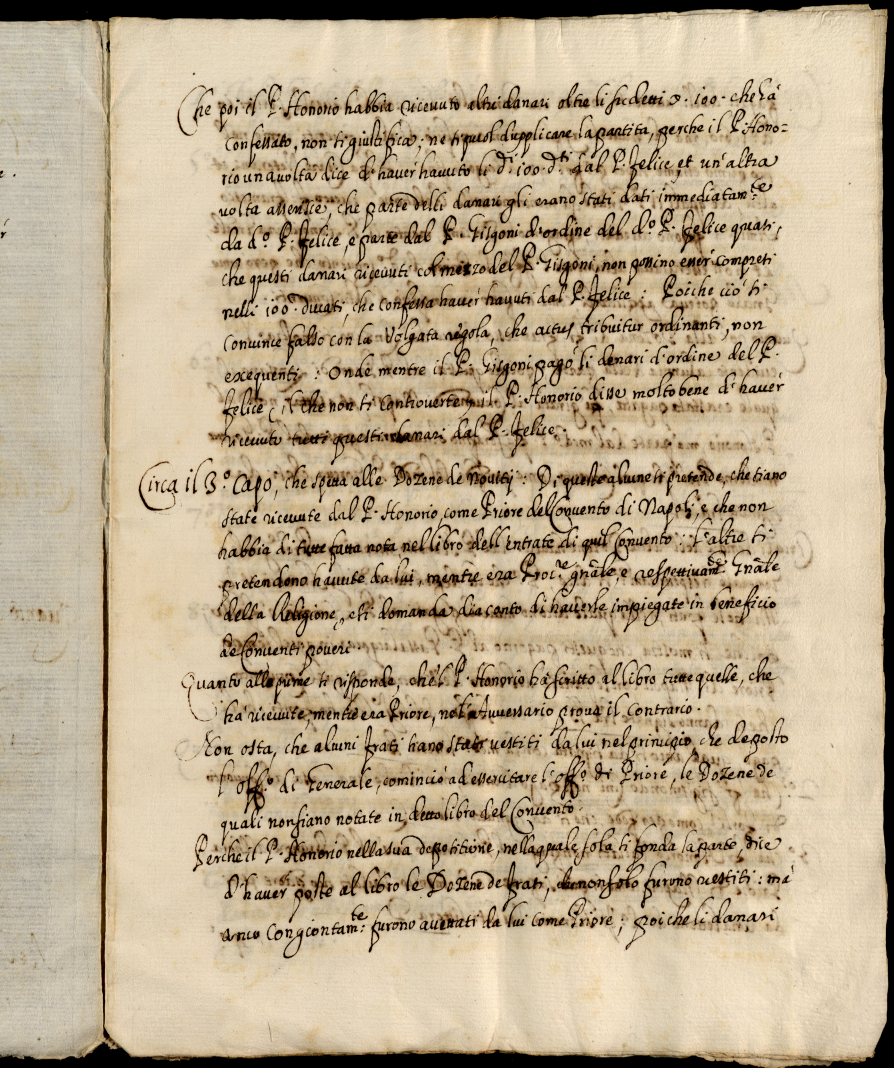 Che poi il P. Honorio habbia ricevuto altri danari oltre li sudetti d. 100. che hà
confessato, non si giustifica; ne si puol duplicare la partita, perche il P. Hono=
rio una volta dice d'haver havuto li d.i 100. d.ti dal P. Felice, et un'altra
volta asserisce, che parte delli danari gli erano stati dati immediatam.te
da d.o P. Felice, e parte dal P. Gisgoni d'ordine del d.o P. Felice quasi,
che questi danari ricevuti col mezzo del P. Gisgoni, non possino esser compresi
nelli 100. ducati, che confessa haver havuti dal P. Felice: Poiche ciò si
convince falso con la volgata regola, che actus tribuitur ordinanti, non
exequenti: Onde mentre il P. Gisgoni pagò li denari d'ordine del P.
Felice, il che non si controverte, il P. Honorio disse molto bene d'haver
ricevuto tutti questi danari dal P. Felice.
Circa il 3.o Capo, che spetta alle Dozene de Novitij: Di queste alcune si pretende, che siano
state ricevute dal P. Honorio, come Priore del Convento di Napoli, e che non
habbia di tutte fatta nota nel libro dell'Entrate di quel Convento: L'altre si
pretendono havute da lui, mentre era Proc.re gñale, e respettivam.te Gñale
della Religione, e si domanda dia conto di haverle impiegate in beneficio
de Conventi poveri.
Quanto alle prime si risponde, che'l P. Honorio hà scritto al libro tutte quelle, che
hà ricevute, mentre era Priore, nè l'Avversario prova il contrario.
Non osta, che alcuni frati siano stati vestiti da lui nel principio, che deposto
l'off.o di Generale, cominciò ad essercitare l'off.o di Priore, le Dozene de
quali non siano notate in detto libro del Convento.
Perche il P. Honorio nella sua depositione, nella quale sola si fonda la parte, dice
d'haver poste al libro le Dozene de frati, che non solo furono vestiti: mà
anco congiontam.te furono accettati da lui come Priore; poiche li danari